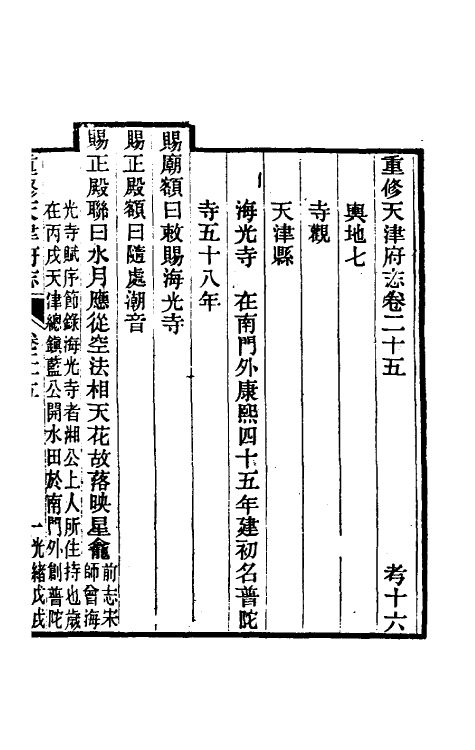 重修天津府志卷二十五　考十六
輿地七
寺觀
天津縣
海光寺　在南門外康熙四十五年建初名普陀
寺五十八年
賜廟額曰敕賜海光寺
賜正殿額曰隨處潮音
賜正殿聯曰水月應從空法相天花故落映星龕前志宋
師曾海
光寺賦序節錄海光寺者湘公上人所住持也歲
在丙戌天津總鎮藍公開水田於南門外創普陀
重修天津府志　卷二十五　一　光緒戊戌